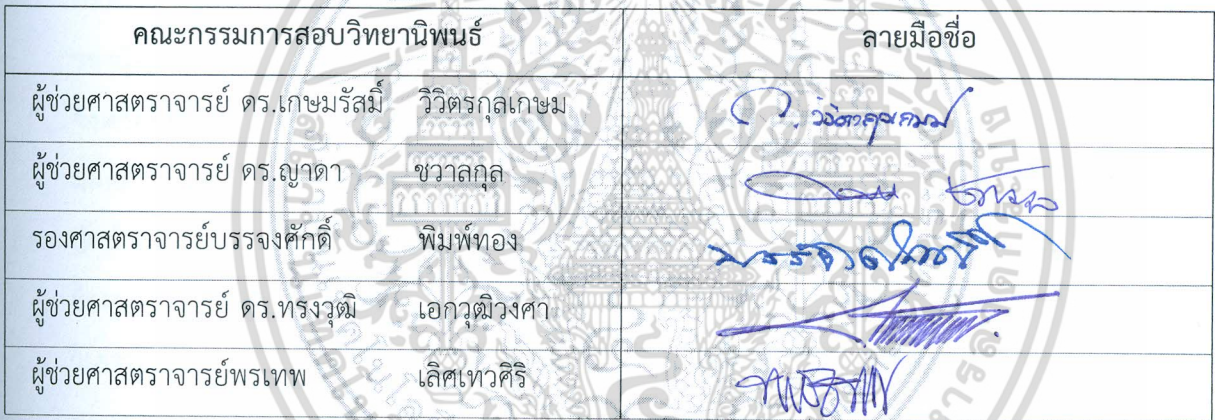 คณะกรรมการสอบวิทยานิพนธ์ ลายมือชื่อ
ผู้ช่วยศาสตราจารย์ ดร.เกษมรัสมิ์ วิวิตรกุลเกษม
ผู้ช่วยศาสตราจารย์ ดร.ญาดา ชวาลกุล
รองศาสตราจารย์บรรจงศักดิ์ พิมพ์ทอง
ผู้ช่วยศาสตราจารย์ ดร.ทรงวุฒิ เอกวุฒิวงศา
ผู้ช่วยศาสตราจารย์พรเทพ เลิศเทวศิริ